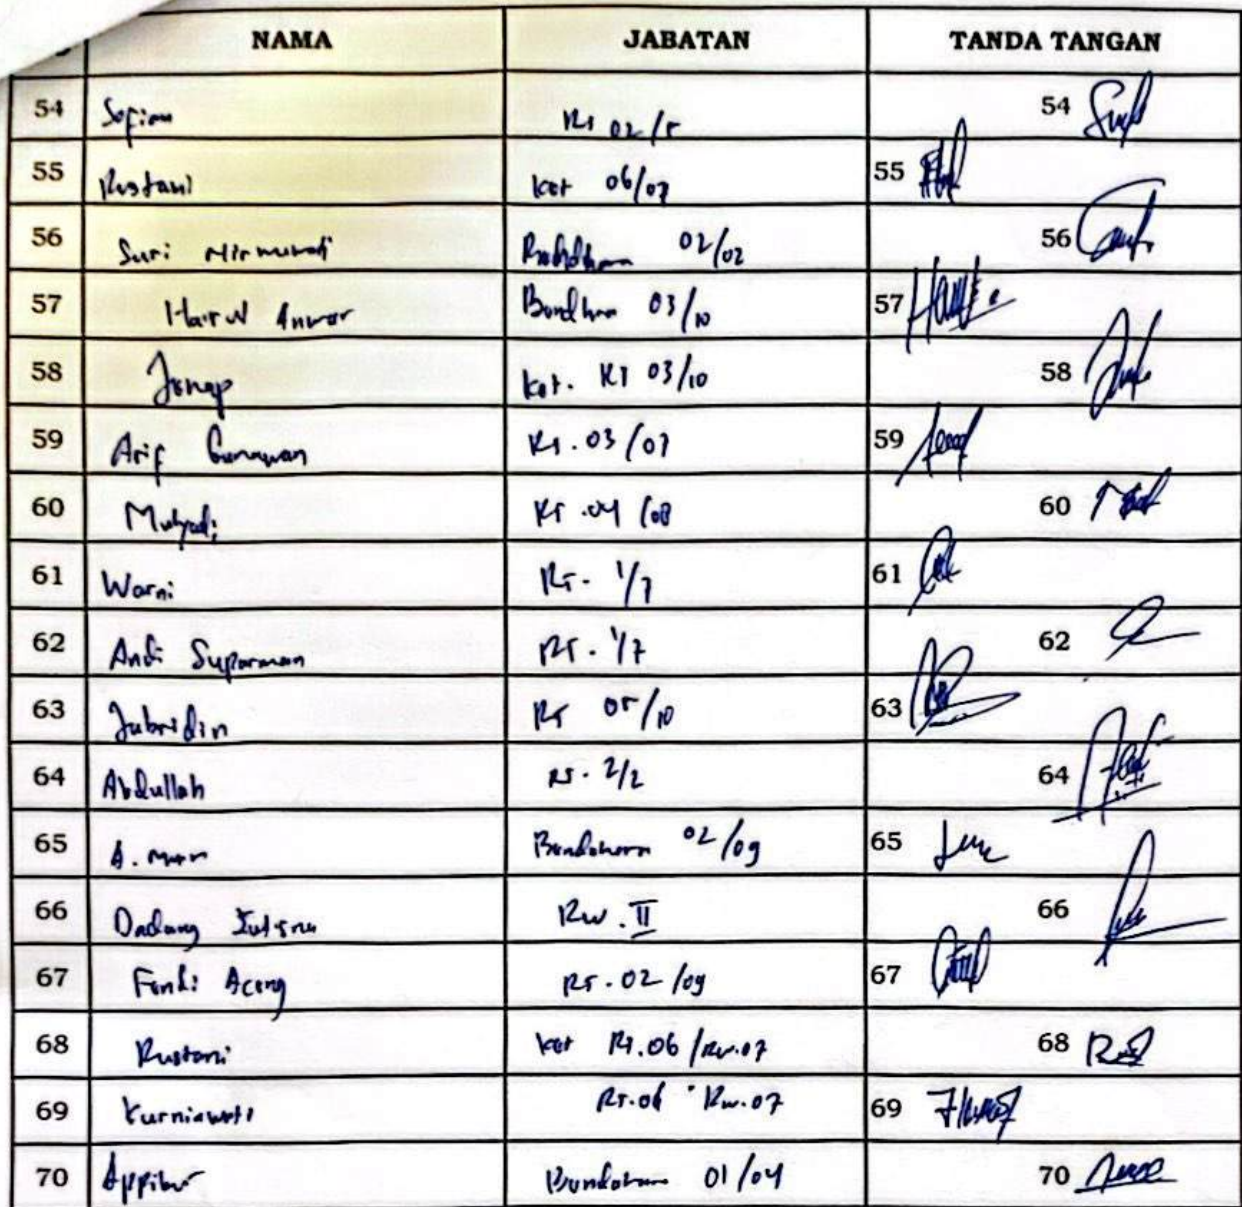 NAMA JABATAN TANDA TANGAN
54 Sofian RT 02/5 54
55 Rustani Ket 06/07 55
56 Suri 02/02 56
57 Hairul Anwar 03/10 57
58 Ket. RT 03/10 58
59 Arif Gunawan RT. 03/07 59
60 Mulyadi RT .04/08 60
61 Warni RT. 1/7 61
62 Andi Suparman RT. 1/7 62
63 Jubridin RT 05/10 63
64 Abdullah RT. 2/2 64
65 A. Bendahara 02/09 65
66 Dadang Rw. II 66
67 Fendi Aceng RT. 02/09 67
68 Rustani Ket RT.06/Rw.07 68
69 Kurniawati RT.06 Rw.07 69
70 Bundahara 01/04 70